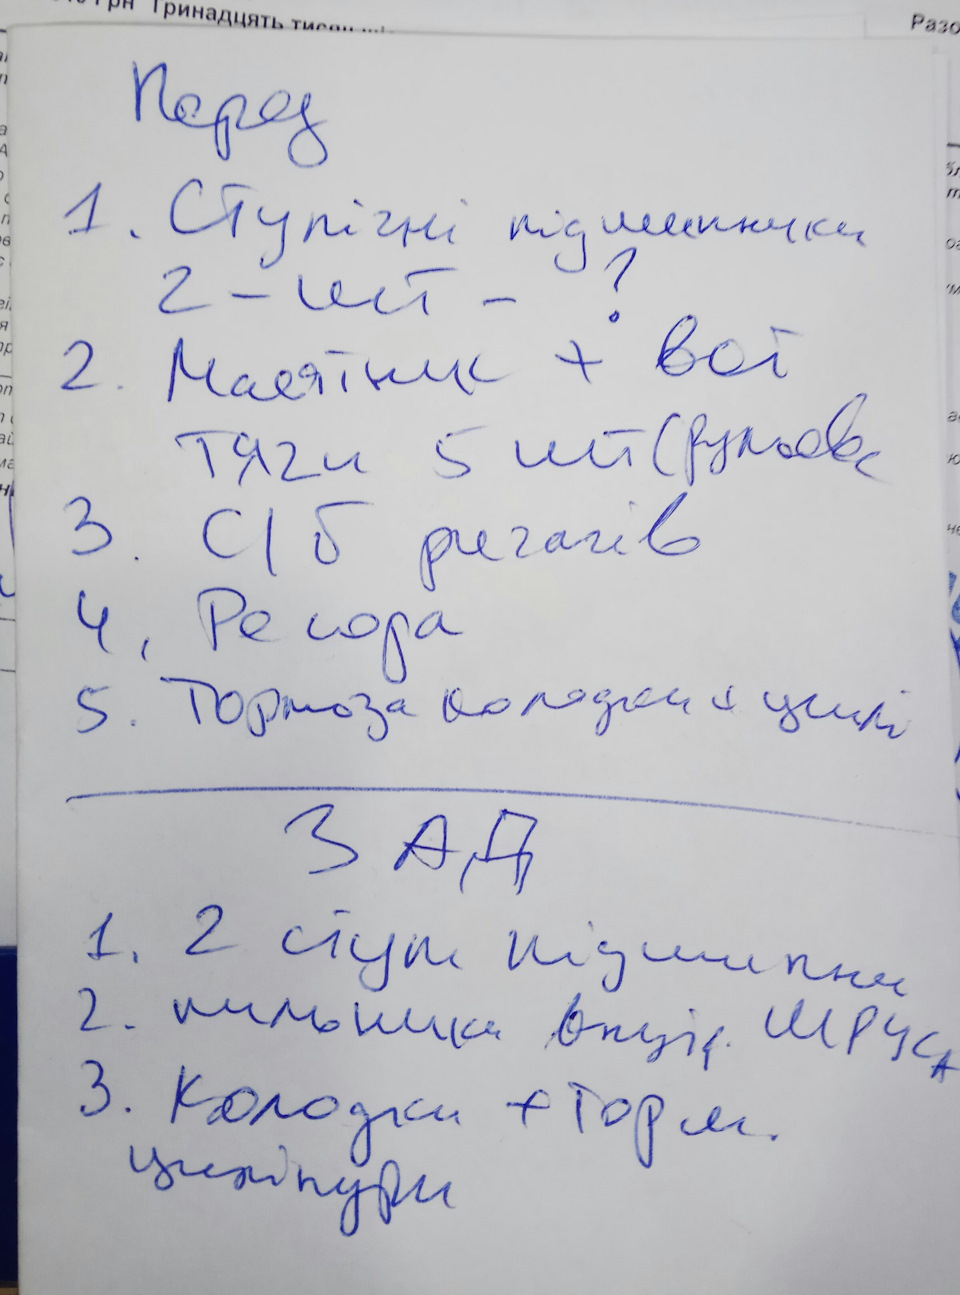 грн Тринадцять тисяч
Разо
Перед
1. Ступічні підшипники
2 - шт - ?
2. Маятник + всі
тяги 5 шт (рульові
3. С/б ричагів
4, Ресора
5. Тормоза колодки + цилі
ЗАД
1. 2 ступ підшипни
2. пильники внутр. ШРУСА
3. Колодки + торм.
циліндри